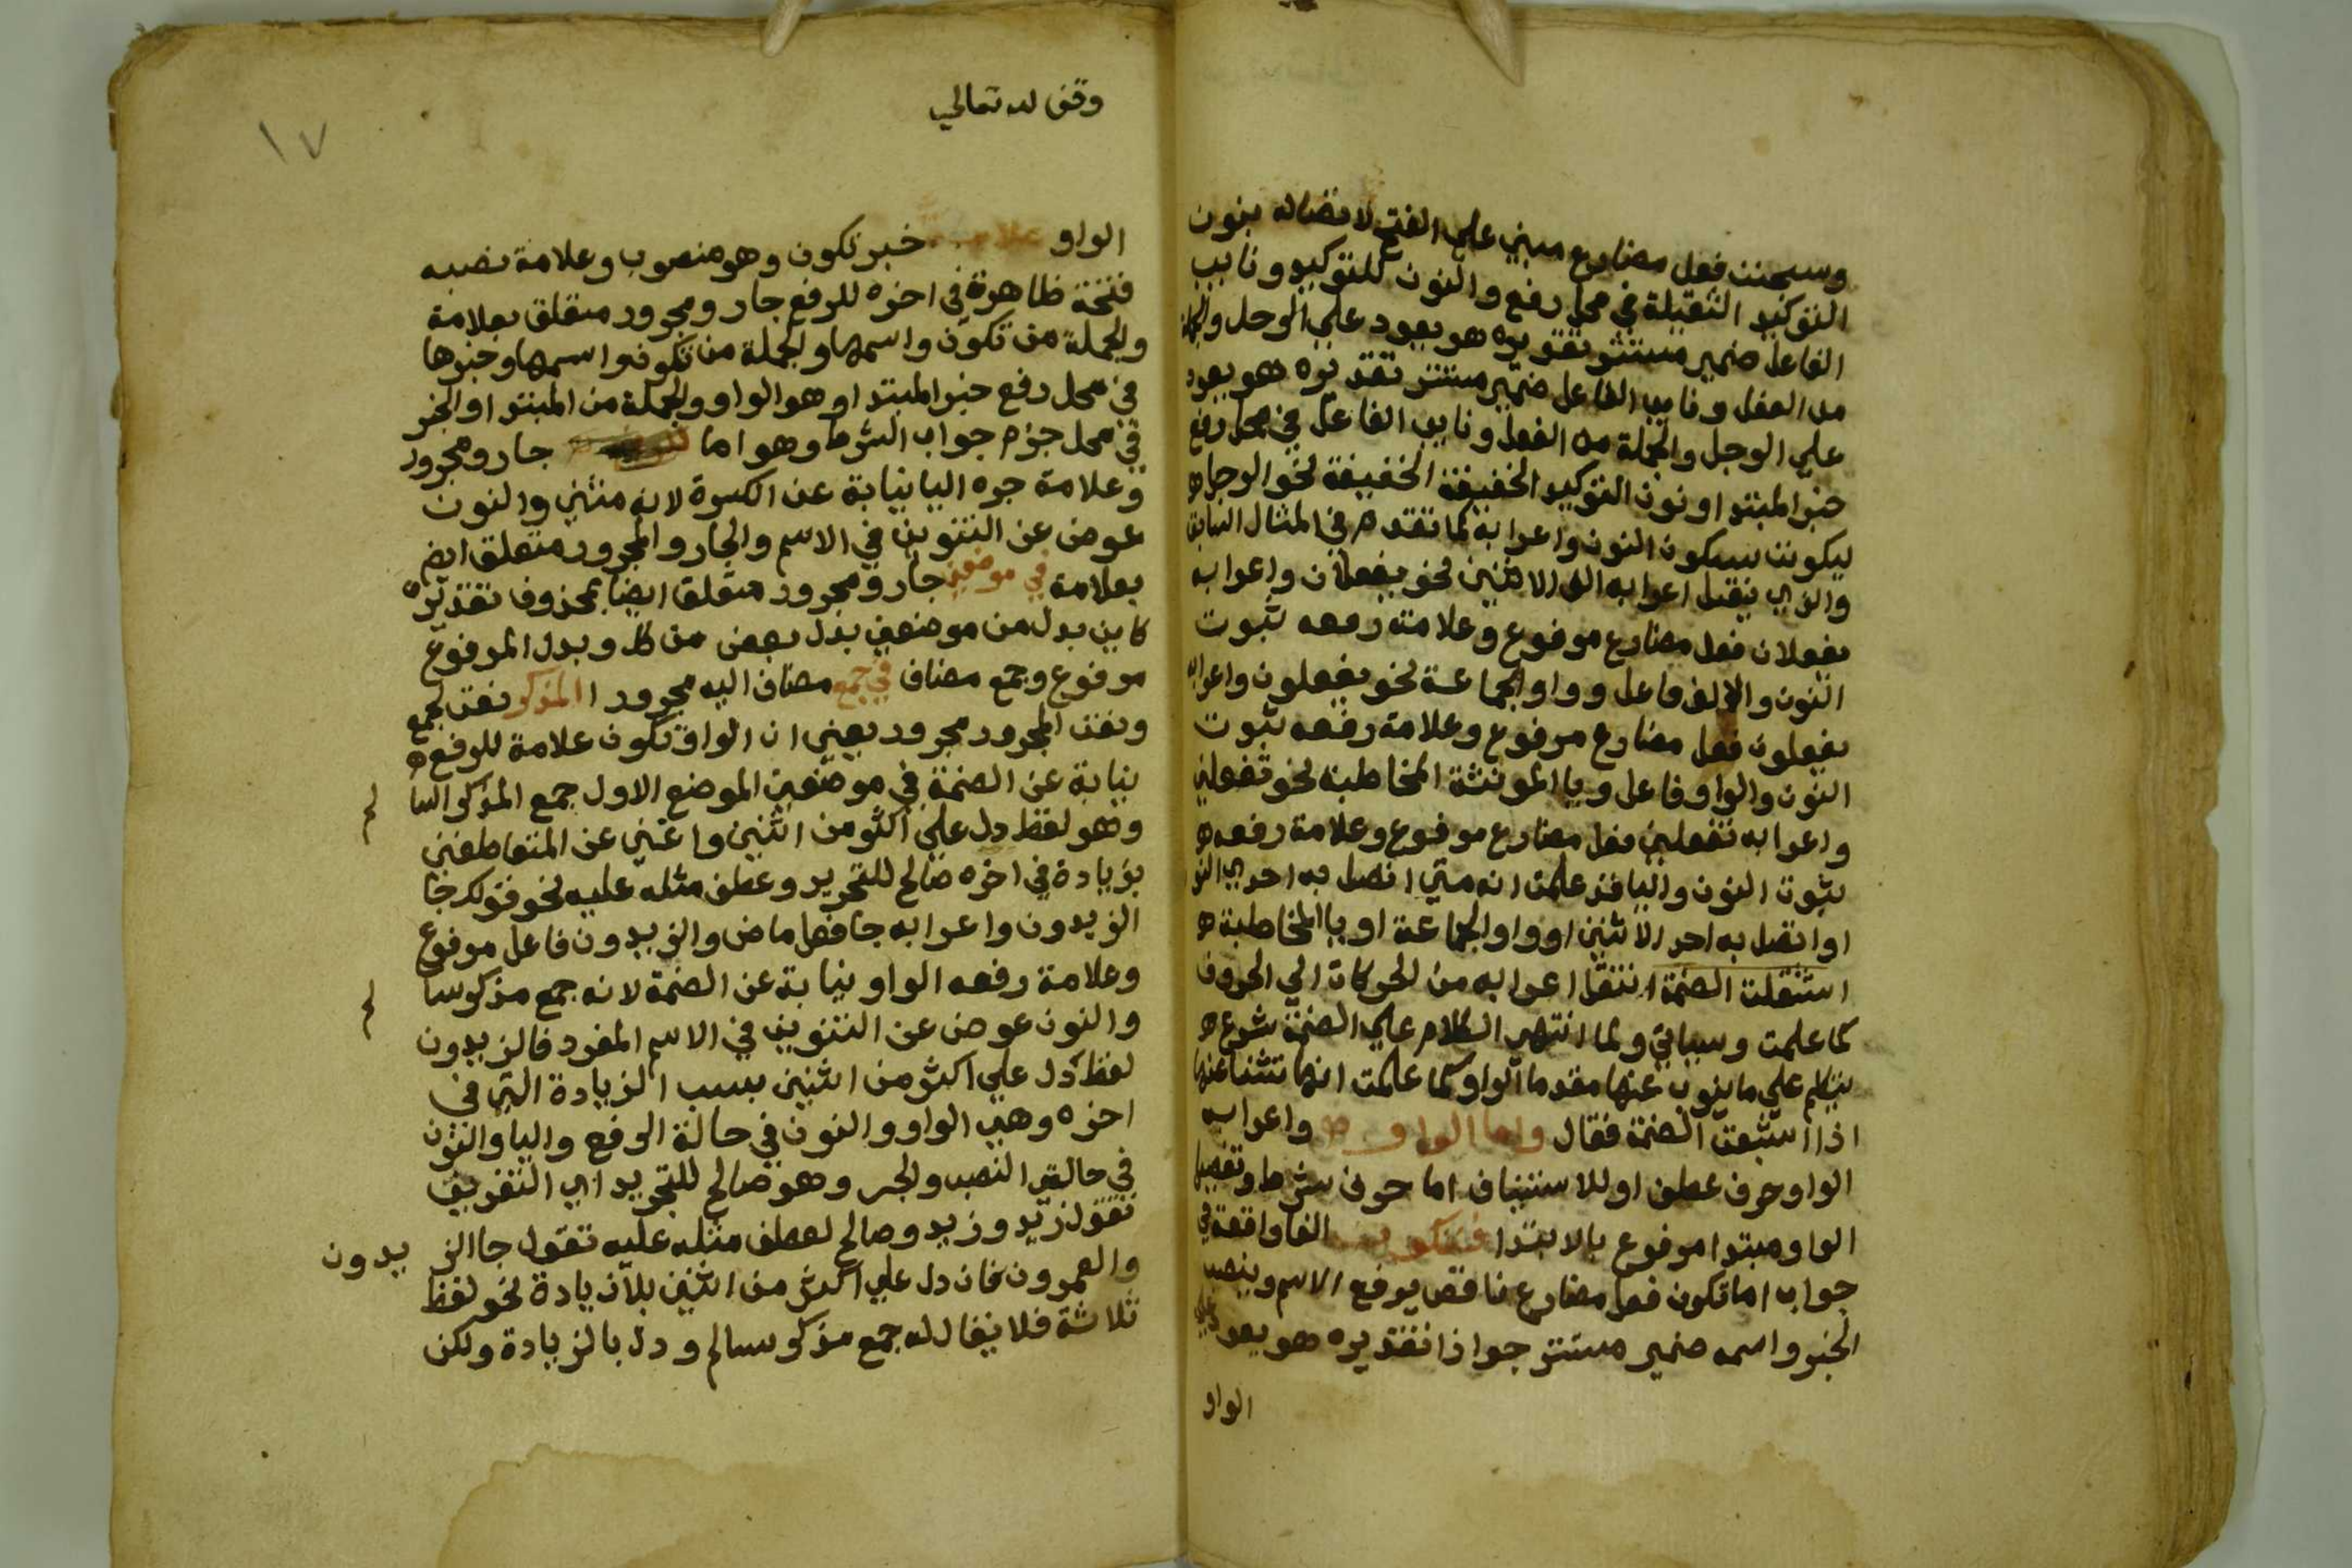 وسيجنن فعل مضارع مبني علي الفتح لاتصاله بنون
التوكيد الثقيلة في محل رفع والنون للتوكيد ونايب
الفاعل ضمير مستتر تقديره هو يعود علي الرجل والجملة
من الفعل ونايب الفاعل ضمير مستتر تقديره هو يعود
علي الرجل والجملة من الفعل ونايب الفاعل في محل رفع
خبر المبتدا او نون التوكيد الخفيفة الخفيفة نحو الرجل
ليكونن بسكون النون واعرابه كما تقدم في المثال السابق
والذي ينقل اعرابه الف الاثنين نحو يفعلان واعرابه
يفعلان فعل مضارع مرفوع وعلامة رفعه ثبوت
النون والالف فاعل وواو الجماعة نحو يفعلون واعرابه
يفعلون فعل مضارع مرفوع وعلامة رفعه ثبوت
النون والواو فاعل ويا المونثة المخاطبة نحو تفعلين
واعرابه تفعلين فعل مضارع مرفوع وعلامة رفعه
ثبوت النون واليا فقد علمت انه متي اتصل به احدي النو
او اتصل به احد الاثنين او واو الجماعة او يا المخاطبة
استثقلت الضمة انتقل اعرابه من الحركات الي الحروف
كما علمت وسياتي ولما انتهي الكلام علي الضمة شرع
يتكلم علي ما ينوب عنها مقدما الواو كما علمت انها تنشا عنها
اذا اشبعت الضمة فقال واما الواو واعرابه
الواو حرف عطف او للاستيناف اما حرف شرط وتفصيل
الواو مبتدا مرفوع بالابتدا فتكون الفا واقعة في
جواب اما تكون فعل مضارع ناقص يرفع الاسم وينصب
الخبر واسمه ضمير مستتر جوازا تقديره هو يعود علي
الواو
وقف لله تعالي
١٧
الواو علامة خبر تكون وهو منصوب وعلامة نصبه
فتحة ظاهرة في اخره للرفع جار ومجرور متعلق بعلامة
والجملة من تكون واسمها والجملة من تكون واسمها وخبرها
في محل رفع خبر المبتدا وهو الواو والجملة من المبتدا والخبر
في محل جزم جواب الشرط وهو اما جار ومجرور
وعلامة جره اليا نيابة عن الكسرة لانه مثني والنون
عوض عن التنوين في الاسم والجار والمجرور متعلق ايض
بعلامة في موضعين جار ومجرور متعلق ايضا بمحذوف تقديره
كاين بدل من موضعين بدل بعض من كل وبدل المرفوع
مرفوع وجمع مضاف في جمع مضاف اليه مجرور المذكر نعت لجمع
ونعت المجرور مجرور يعني ان الواو تكون علامة للرفع
نيابة عن الضمة في موضعين الموضع الاول جمع المذكر السا لم
وهو لفظ دل علي اكثر من اثنين واغني عن المتعاطفين
بزيادة في اخره صالح للتجريد وعطف مثله عليه نحو قولك جا
الزيدون واعرابه جا فعل ماض والزيدون فاعل مرفوع
وعلامة رفعه الواو نيابة عن الضمة لانه جمع مذكر سا لم
والنون عوض عن التنوين في الاسم المفرد فالزيدون
لفظ دل علي اكثر من اثنين بسبب الزيادة التي في
اخره وهي الواو والنون في حالة الرفع واليا والنون
في حالتي النصب والجر وهو صالح للتجريد اي التفريق
تقول زيد وزيد وصالح لعطف مثله عليه تقول جا الز يدون
والعمرون فان دل علي اكثر من اثنين بلا زيادة نحو لفظ
ثلاثة فلا يقال له جمع مذكر سالم ودل بالزيادة ولكن